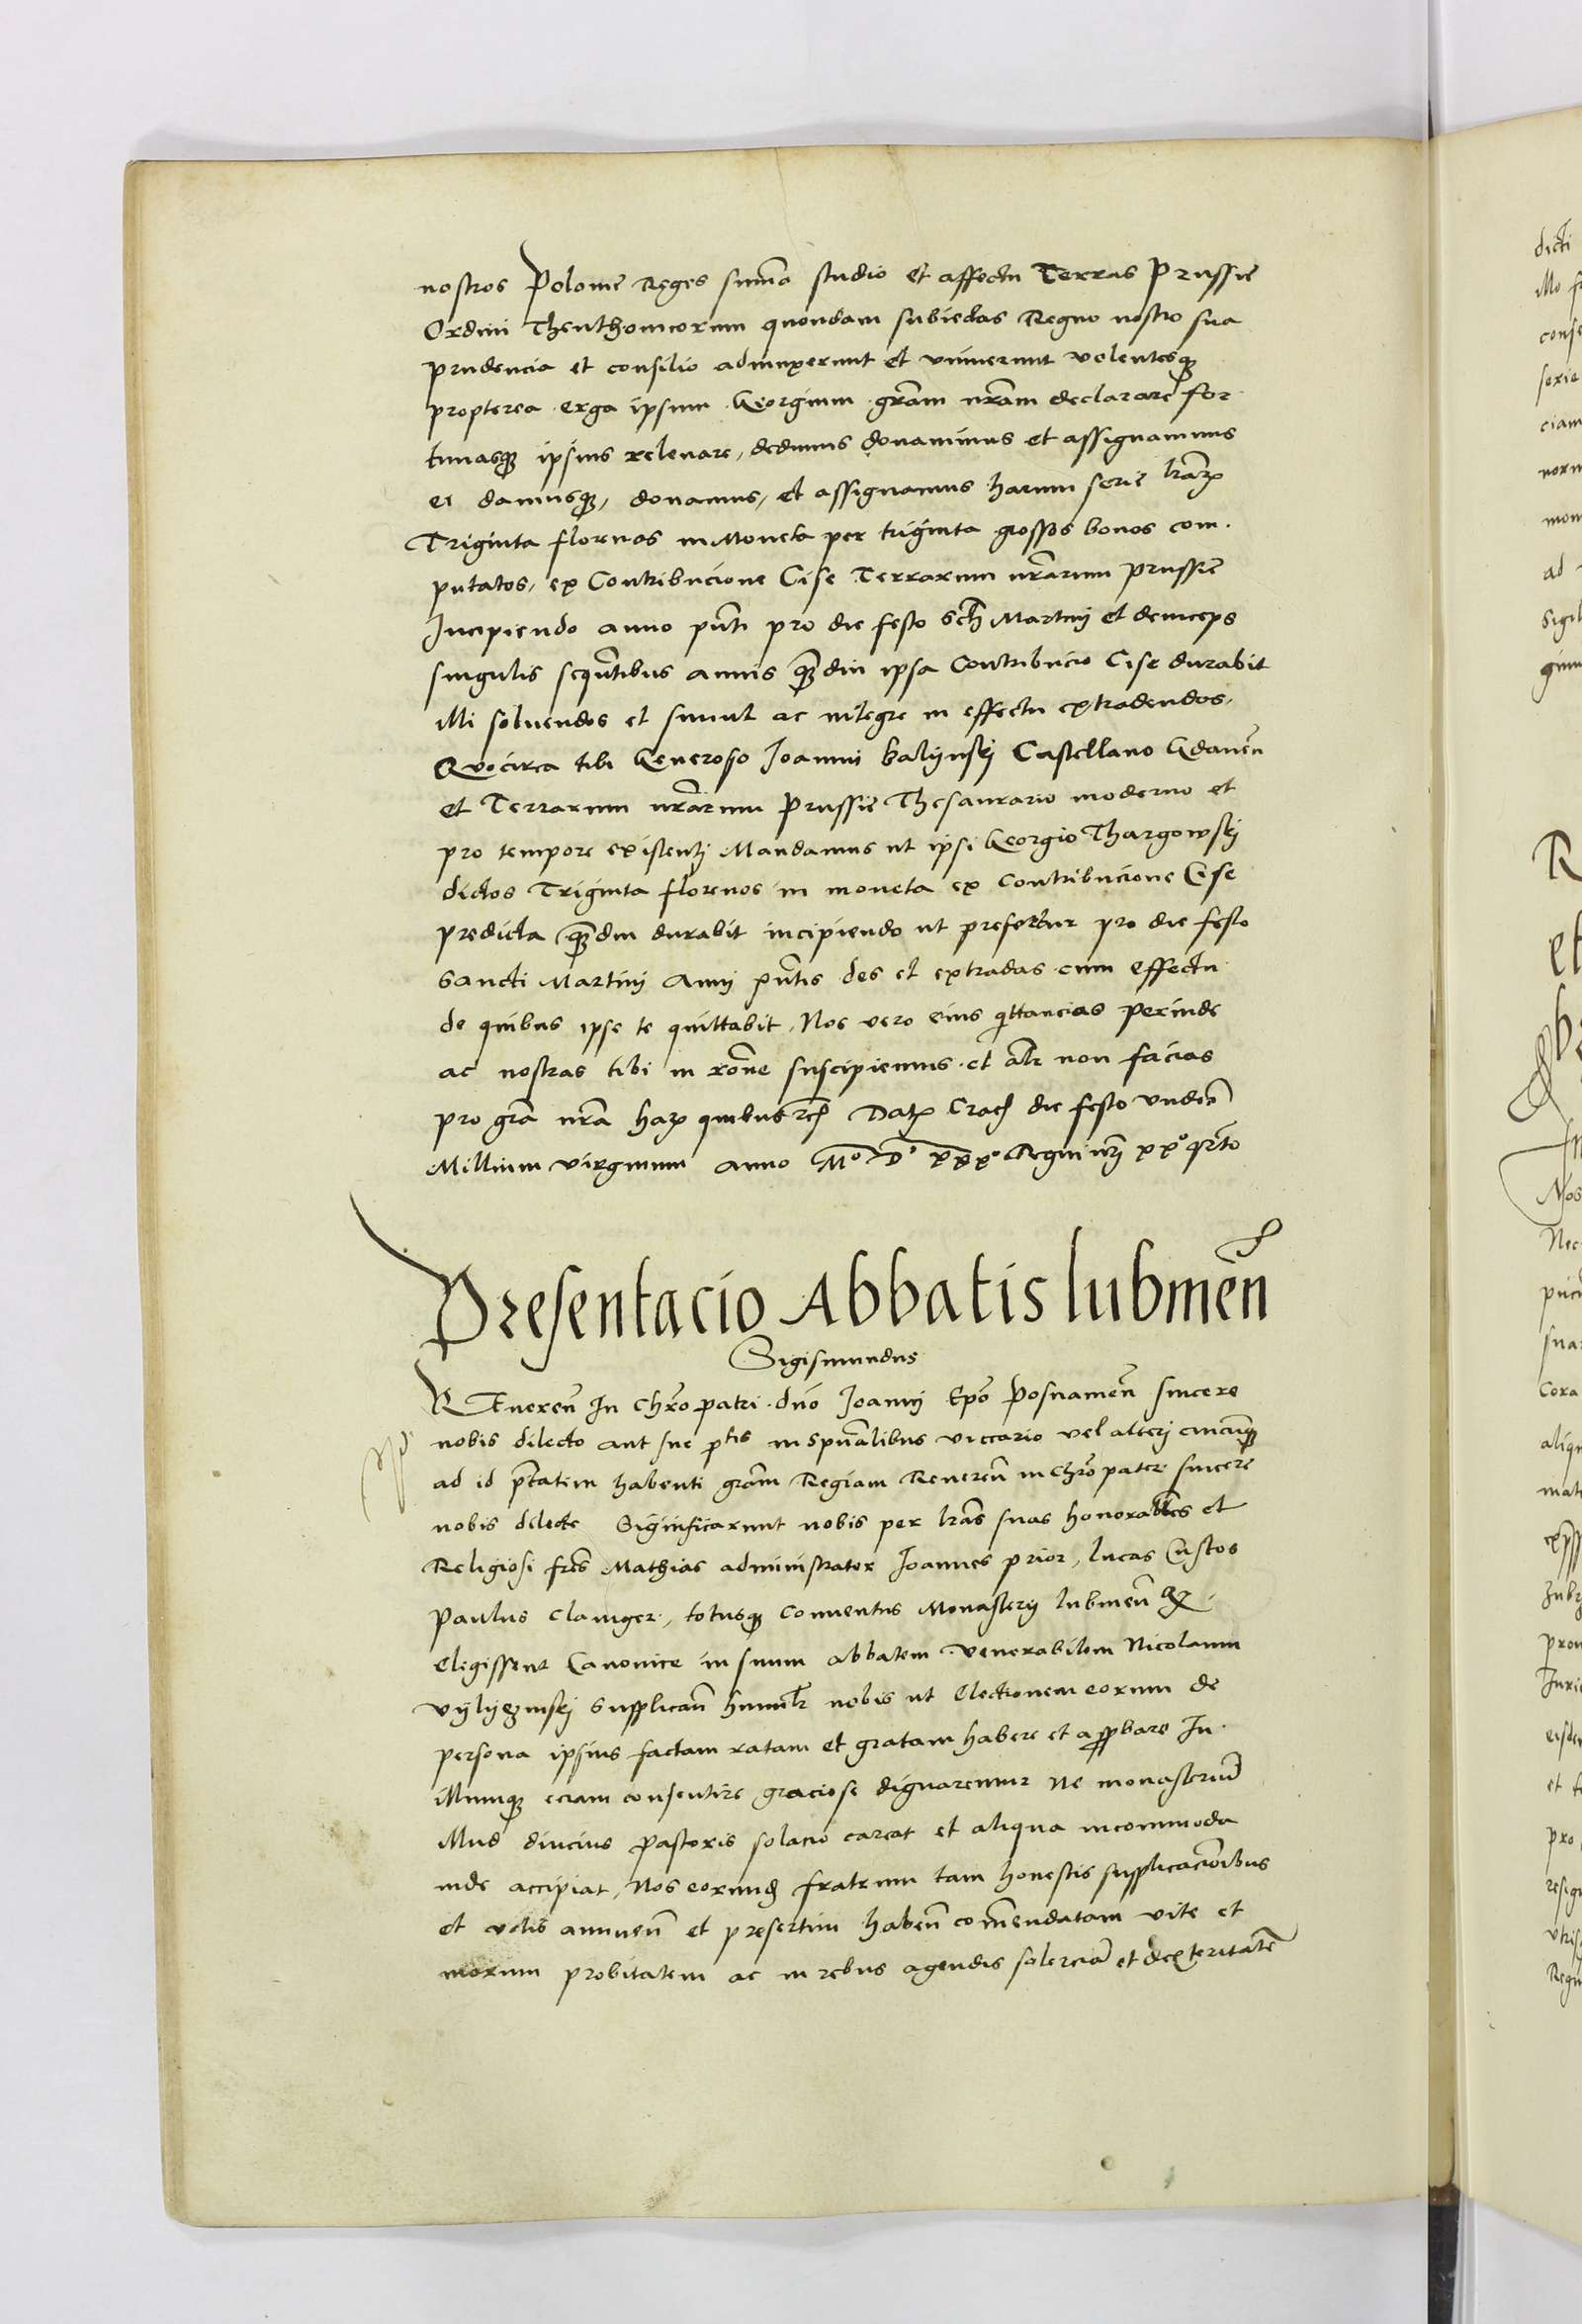 nostros Polonie Reges summa studio et affectu Terras Prussie
Ordini Theuthonicorum quondam subiectas Regno nostro sua
prudencia et consilio adiunxerunt et univerunt volentesq3
propterea erga ipsum Georgium gram nram declarare for
tunasq3 ipsius relevare, dedimus donavimus et assignavimus
ei damusq3, donamus, et assignamus harum serie lrar
Triginta florenos in Moneta per triginta grossos bonos com
putatos, ex Contribucione Cise Terrarum nrarum Prussie
Incipiendo anno pnti pro die festo Scti Martinj et deinceps
singulis sequntibus annis q3diu ipsa Contribucio Cise durabit
illi solvendos et simul ac integre in effectu extradendos.
Quocirca tibi Generoso Joanni Balijnskj Castellano Gdanen
et Terrarum nrarum Prussie Thesaurario moderno et
pro tempore existentj Mandamus ut ipsi Georgio Thargowskj
dictos Triginta florenos in moneta ex Contribucione Cise
predicta q3diu durabit incipiendo ut prefertur pro die festo
Sancti Martini Anni pntis des et extradas cum effectu
de quibus ipse te quittabit, Nos vero eius qittancias perinde
ac nostras tibi in rone suscipiemus et alr non facias
pro gra nra har quibus rc Datr Crac die festo undeci
Millium virginum anno Mo Do xxxo Regni nrj xxo qrto
Presentacio Abbatis lubmen
Sigismundus
REveren In Chro patri dno Joannj Epo Posnanien sincere
nobis dilecto aut sue ptis in spualibus viccario vel alterj cuicumq3
ad id ptatem habenti gram Regiam Reveren in chro pater sincere
nobis dilecte Significarunt nobis per lras suas honorabiles et
Religiosi fres Mathias administrator Joannes prior, lucas Custos
Paulus claviger, totusq3 conventus Monasterij lubmen
Eligissent Canonice in suum abbatem venerabilem Nicolaum
supplican humilr nobis ut Electionem eorum de
persona ipsius factam ratam et gratam habere et appbare In
illumq3 eciam consentire graciose dignaremur Ne monasteriu
illud diucius pastoris solacio careat et aliqua incommoda
inde accipiat, Nos eorund fratrum tam honestis supplicacionibus
et votis annuen et presertim haben comendatam vite et
morum probitatem ac in rebus agendis solercia et dexteritate